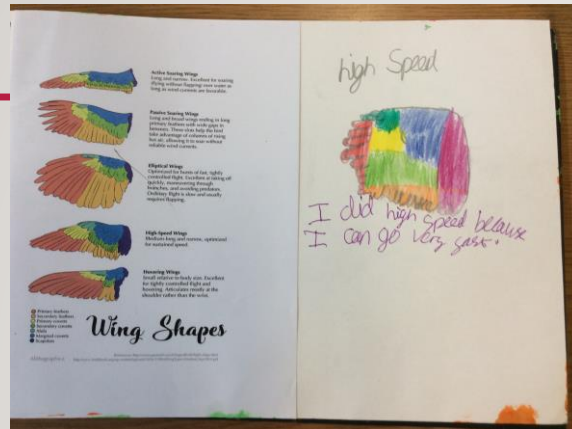 Active Soaring Wings
Long and narrow. Excellent for soaring
flying without flapping over water as
long as wind currents are favorable.
Passive Soaring Wings
Long and broad wings ending in long
primary feathers with wide gaps in
between. These slots help the bird
take advantage of columns of rising
hot air, allowing it to soar without
reliable wind currents.
Elliptical Wings
Optimized for bursts of fast, tightly
controlled flight. Excellent at taking off
quickly, maneuvering through
branches, and avoiding predators.
Ordinary flight is slow and usually
requires flapping.
High-Speed Wings
Medium long and narrow, optimized
for sustained speed.
Hovering Wings
Small relative to body size. Excellent
for tightly controlled flight and
hovering. Articulates mostly at the
shoulder rather than the wrist.
Primary feathers
Secondary feathers
Primary coverts
Secondary coverts
Alula
Marginal coverts
Scapulars
Wing Shapes
high Speed
I did high speed because
I can go very fast.